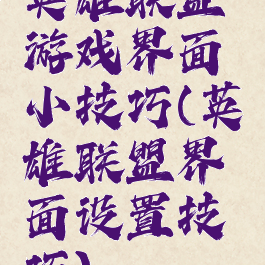 英雄联盟
游戏界面
小技巧(英
雄联盟界
面设置技
巧)